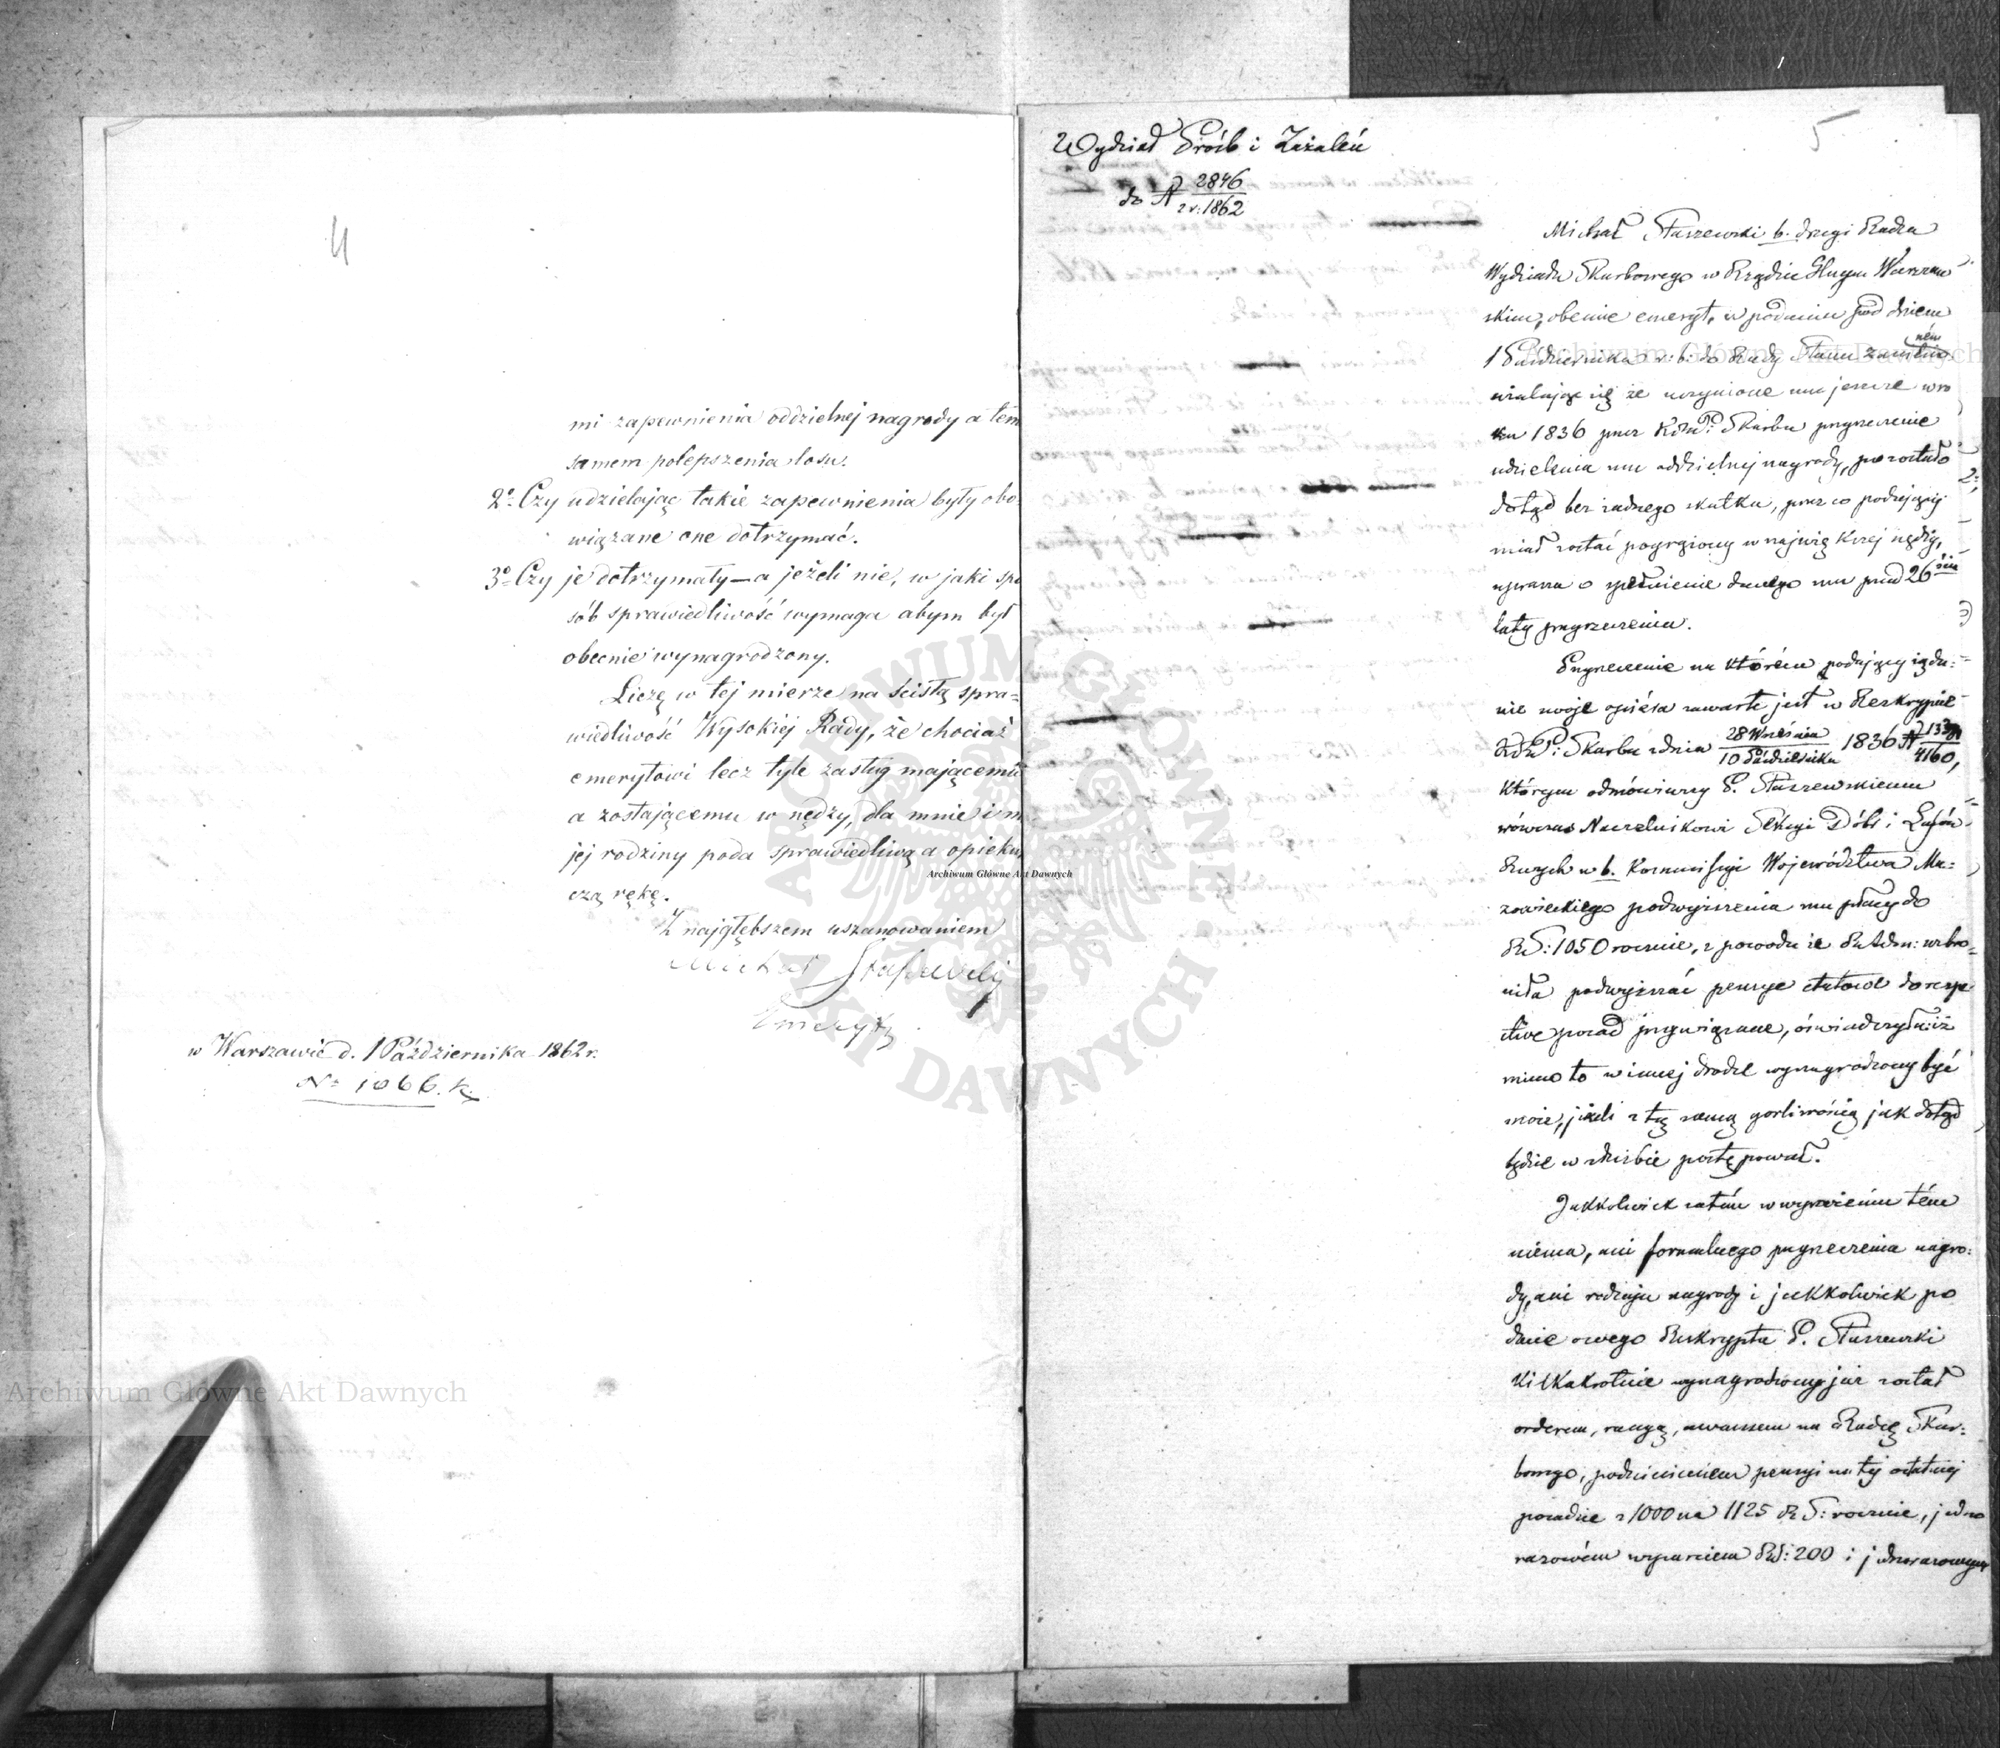 4
mi zapewnienia oddzielnej nagrody a tem
samem polepszenia losu.
2o Czy udzielając takie zapewnienia były obo
wiązane one dotrzymać.
3o Czy je dotrzymały — a jeżeli nie, w jaki spo
sób sprawiedliwość wymaga abym był
obecnie wynagrodzony.
Liczę w tej mierze na ścisłą spra=
wiedliwość Wysokiéj Rady, że chociaż
emerytowi lecz tyle zasług mającemu
a zostającemu w nędzy, dla mnie i m
jej rodziny poda sprawiedliwą a opiekuń
czą rękę.
Z najgłębszem uszanowaniem
Michał Staszewski
Emeryt
w Warszawie d. 1 Października 1862 r.
No 1066. k
5
Wydział Próśb i Zażaleń
do N 2846
z r: 1862
Michał Staszewski b. drugi Radca
Wydziału Skarbowego w Rządzie Głnym Warszaw
skim, obecnie emeryt, w podaniu pod dniem
1 Października r: b: do Rady Stanu
że uczynione mu jeszcze w ro
ku 1836 przez Skarbu przyrzeczenie
udzielenia mu oddzielnej nagrody, pozostało
dotąd bez żadnego skutku, przez co podający
miał zostać pogrążony w największej nędzy,
uprasza o spełnienie danego mu przed 26
laty przyrzeczenia.
Przyrzeczenie na którém podający żąda=
nie swoje opiéra zawarte jest w Reskrypcie
Skarbu z dnia 28 Września / 10 Października 1836 N 4160,
którym odmówiwszy P. Staszewskiemu
wówczas Naczelnikowi Sekcyi Dóbr i Lasów
Rząch w b. Kommissyi Województwa Ma=
zowieckiego podwyższenia mu płacy do
RS: 1050 rocznie, z powodu że RaAdm: wzbro=
niła podwyższać pensye etatowe do respe
ctive posad przywiązane, oświadczyła: iż
mimo to w innej drodze wynagrodzony być
może, jeżeli z tą samą gorliwością jak dotąd
będzie w służbie postępował.
Jakkolwiek zatém w wyrażeniu tém
niema, ani formalnego przyrzeczenia nagro=
dy, ani rodzaju nagrody i jakkolwiek po
dacie owego Reskryptu P. Staszewski
kilkakrotnie wynagrodzony już został
orderem, rangą, awansem na Radcę Skar=
bowego, podniesieniem pensyi na tej ostatniej
posadzie z 1000 na 1125 RS: rocznie, jedno
razowém wsparciem RS: 200 i jednorazowym
Archiwum Główne Akt Dawnych
Archiwum Główne Akt Dawnych
Archiwum Główne Akt Dawnych
ARCHIWUM GŁÓWNE AKT DAWNYCH